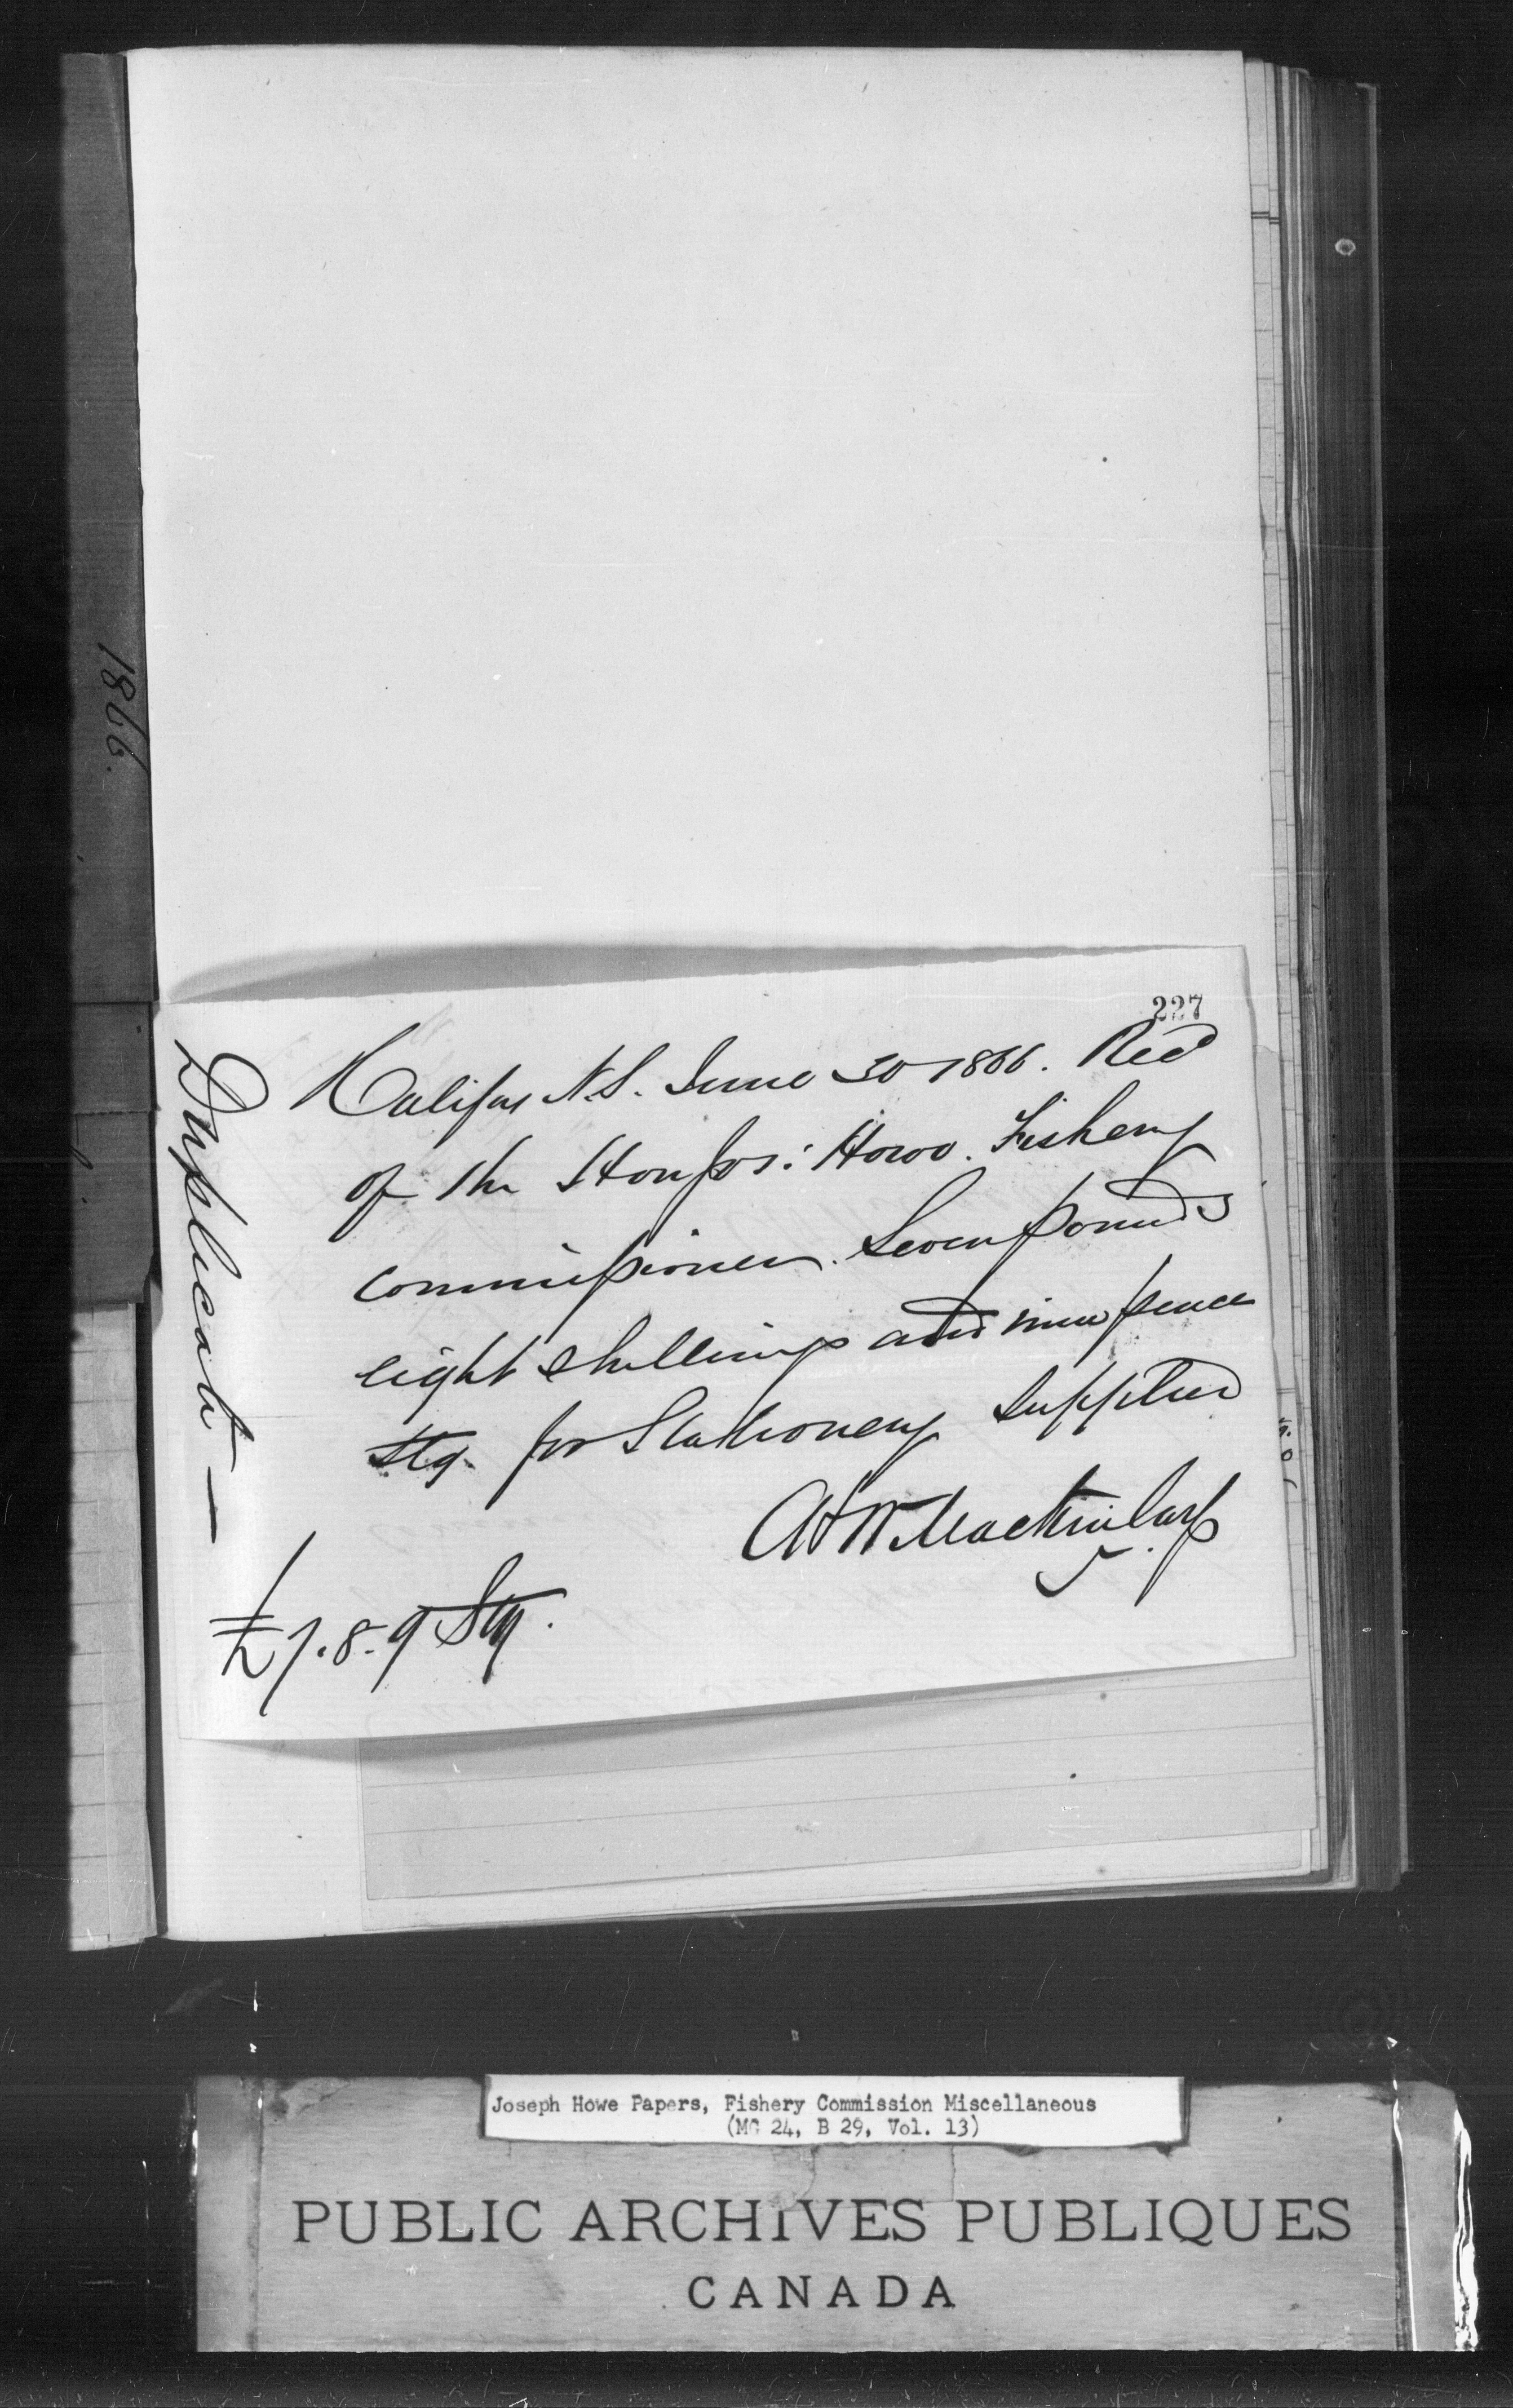 1866.
227
Duplicate —
Halifax N.S. June 30 1866. Recd
of the Hon Jos: Howe. Fishery
Commissioner. Seven pounds
eight shillings and nine pence
Stg. for Stationery supplied
A & W Mackinlay
£7.8.9 Stg.
Joseph Howe Papers, Fishery Commission Miscellaneous
(MG 24, B 29, Vol. 13)
PUBLIC ARCHIVES PUBLIQUES
CANADA